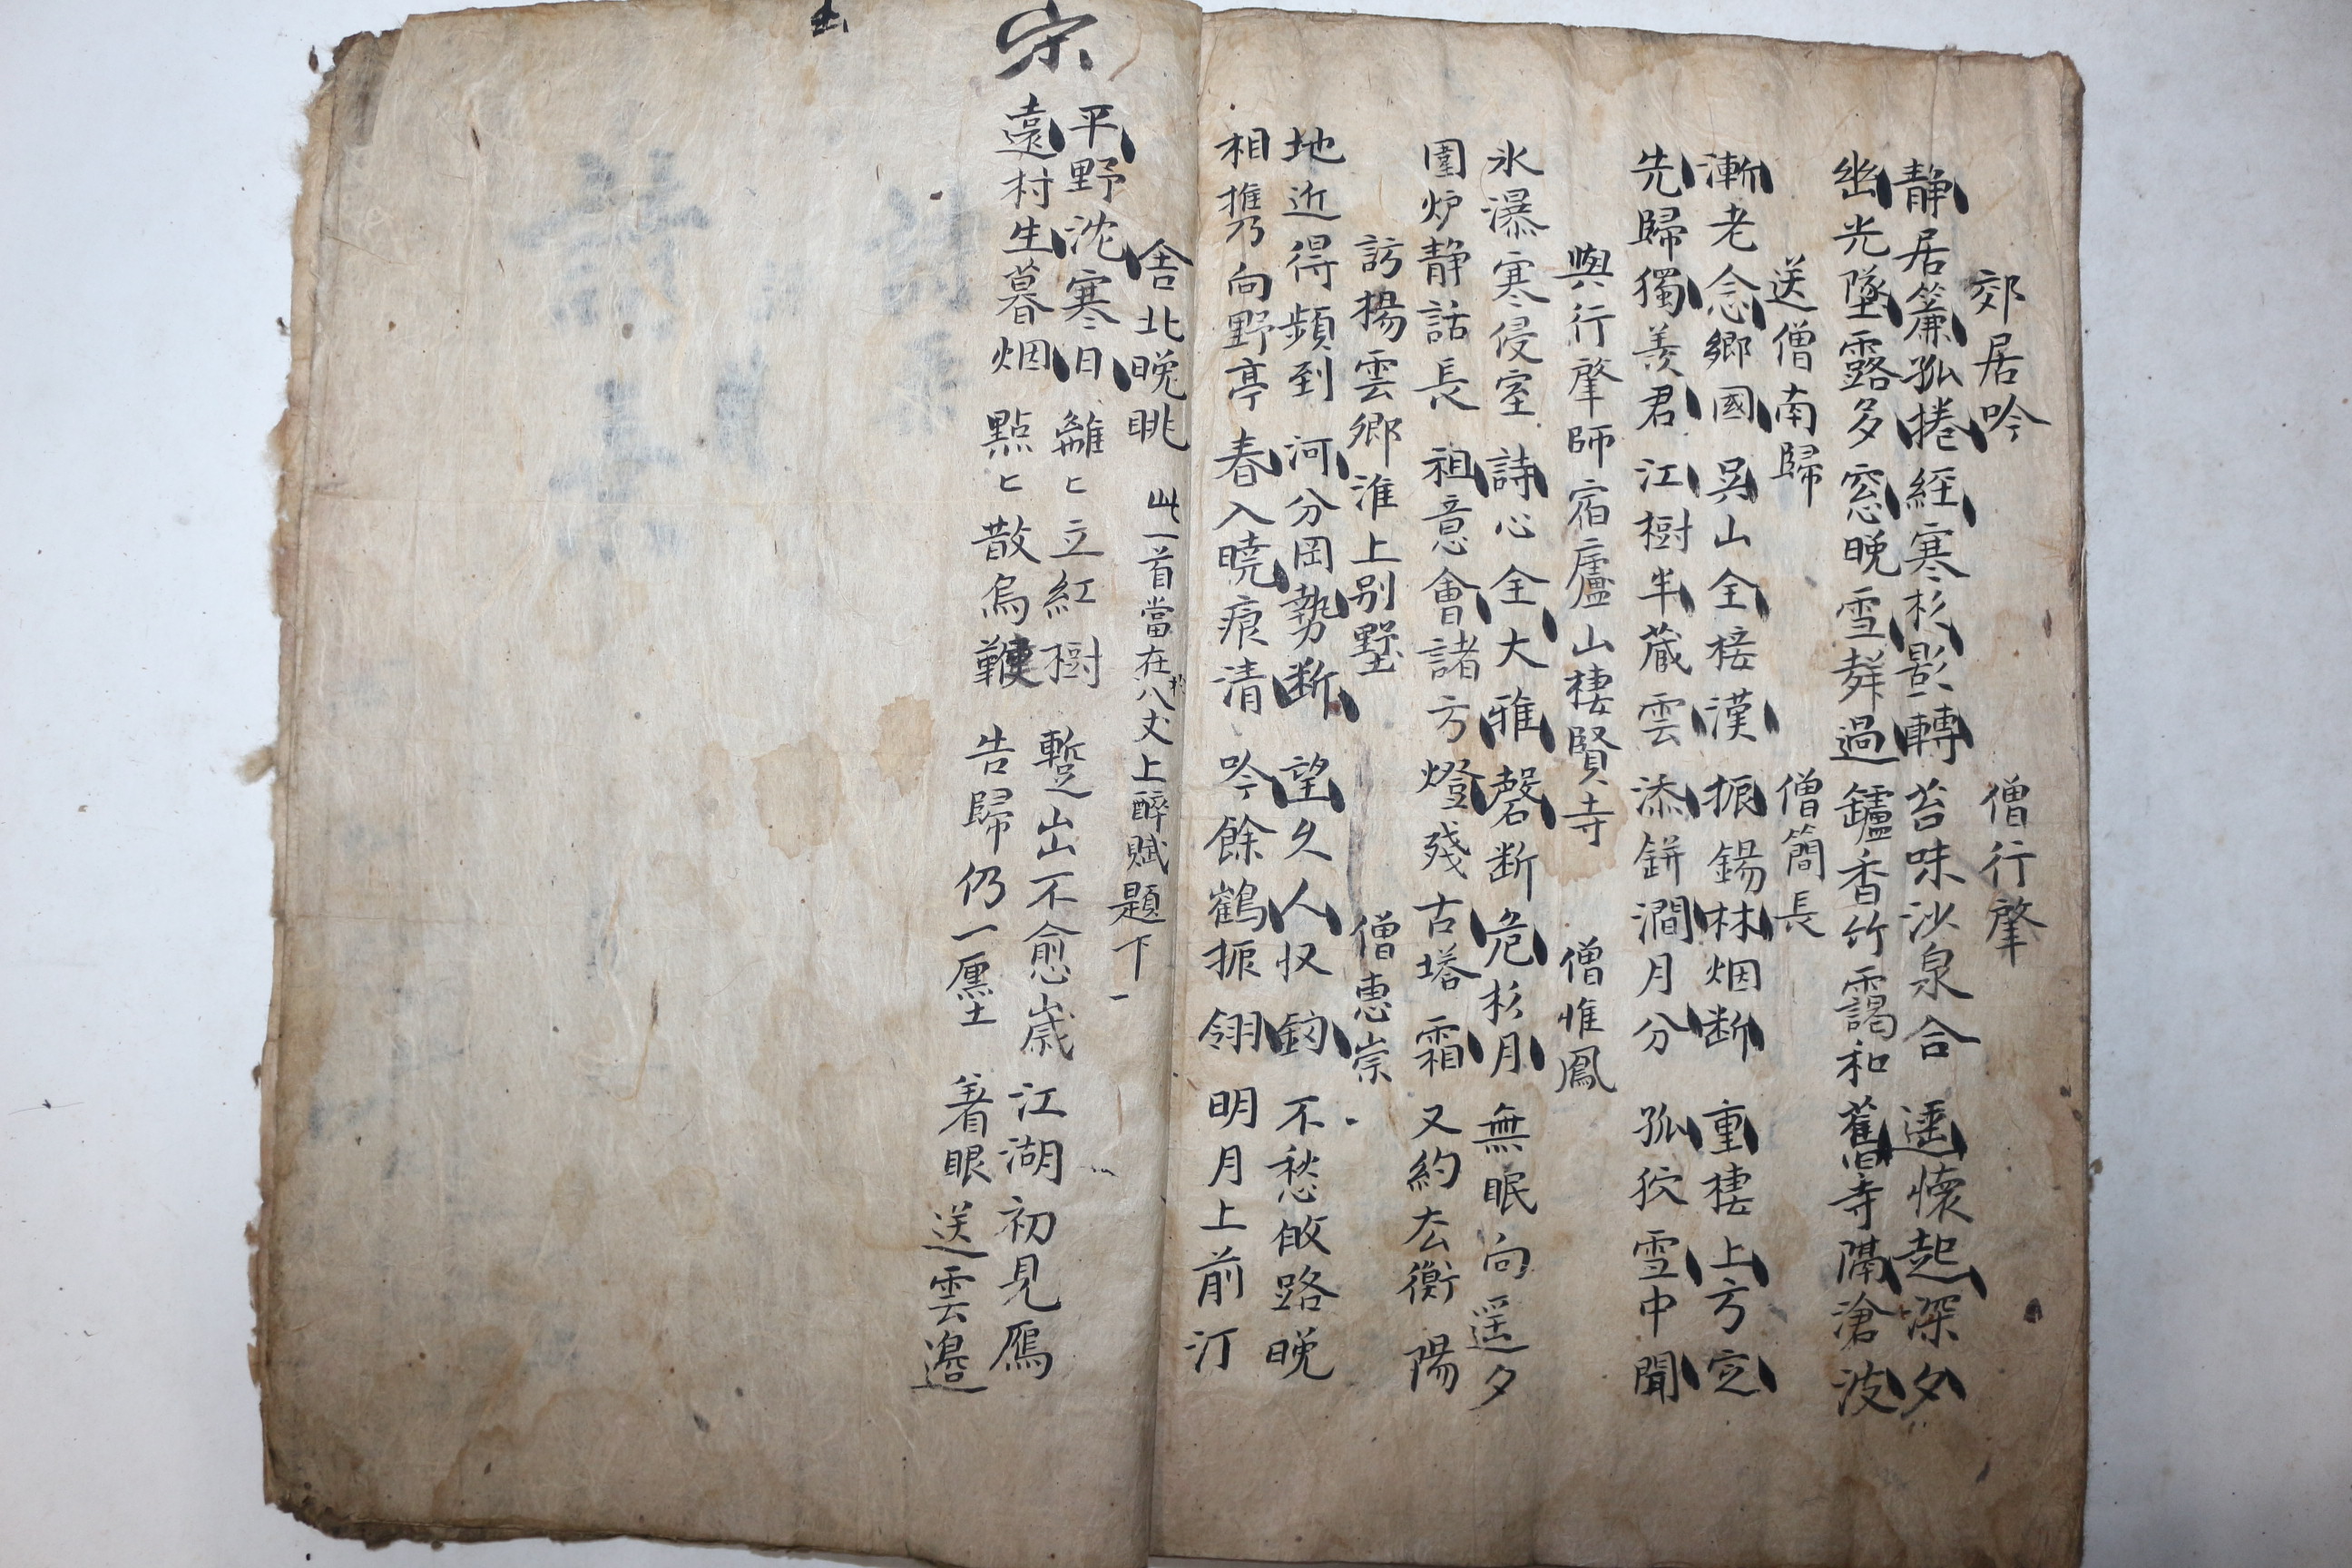 郊居吟 僧行肇
静居簾孤捲經寒杉影轉苔味沙泉合遥懷起深夕
幽光墜露多窓晚雪舜過鑪香竹靄和舊寺隔滄波
送僧南歸 僧簡長
漸老念鄉國吳山全接漢振錫林烟断重棲上方定
先歸獨羨君江樹半蔵雲添缾澗月分孤狖雪中聞
與行肇師宿廬山棲賢寺 僧惟鳳
氷瀑寒侵室詩心全大雅磬断危杉月無眠向遥夕
圍炉静話長祖意會諸方燈殘古塔霜又約去衡陽
訪楊雲鄉淮上别墅 僧惠崇
地近得頻到河分岡勢断望久人収釣不愁敀路晚
相携向野亭春入曉痕清吟餘鶴振翎明月上前汀
舍北晚眺 此一首當在於八丈上醉賦題下
宋
平野沈寒日離〻立紅樹蹔出不愈歳江湖初見鴈
遠村生暮烟點〻散烏鞕告歸仍一㕓着眼送雲邉